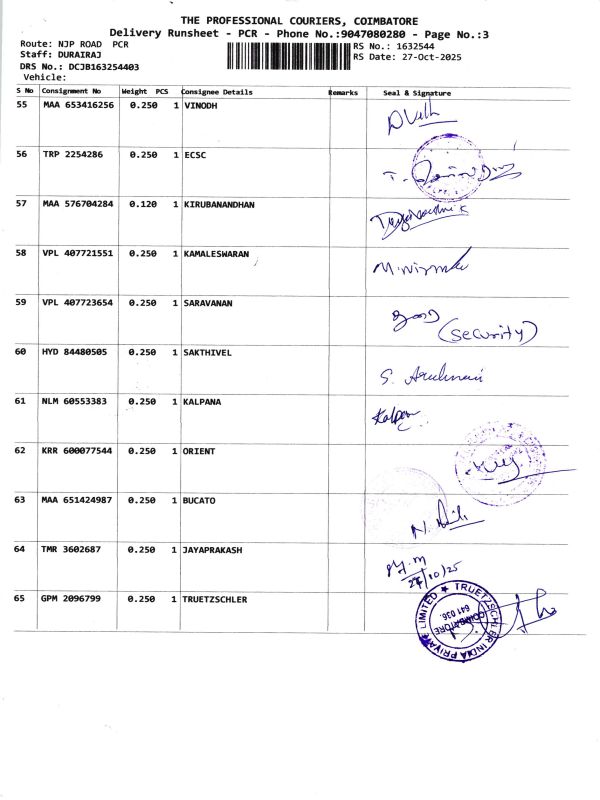 THE PROFESSIONAL COURIERS, COIMBATORE
Delivery Runsheet - PCR - Phone No.:9047080280 - Page No.:3
Route: NJP ROAD PCR
RS No.: 1632544
Staff: DURAIRAJ
RS Date: 27-Oct-2025
DRS No.: DCJB163254403
Vehicle:
S No Consignment No Weight PCS Consignee Details Remarks Seal & Signature
55 MAA 653416256 0.250 1 VINODH
56 TRP 2254286 0.250 1 ECSC
57 MAA 576704284 0.120 1 KIRUBANANDHAN
58 VPL 407721551 0.250 1 KAMALESWARAN
59 VPL 407723654 0.250 1 SARAVANAN
(Security)
60 HYD 84480505 0.250 1 SAKTHIVEL
61 NLM 60553383 0.250 1 KALPANA
62 KRR 600077544 0.250 1 ORIENT
63 MAA 651424987 0.250 1 BUCATO
64 TMR 3602687 0.250 1 JAYAPRAKASH
27/10/25
65 GPM 2096799 0.250 1 TRUETZSCHLER
TRUETZSCHLER INDIA PRIVATE LIMITED
COIMBATORE
641 036.